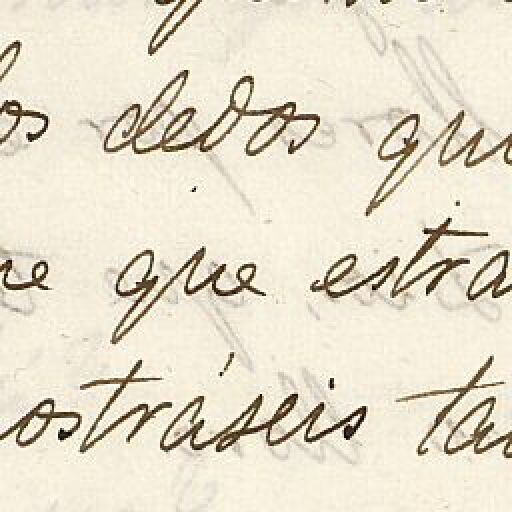 los dedos qu
ue que estra
ostráseis ta